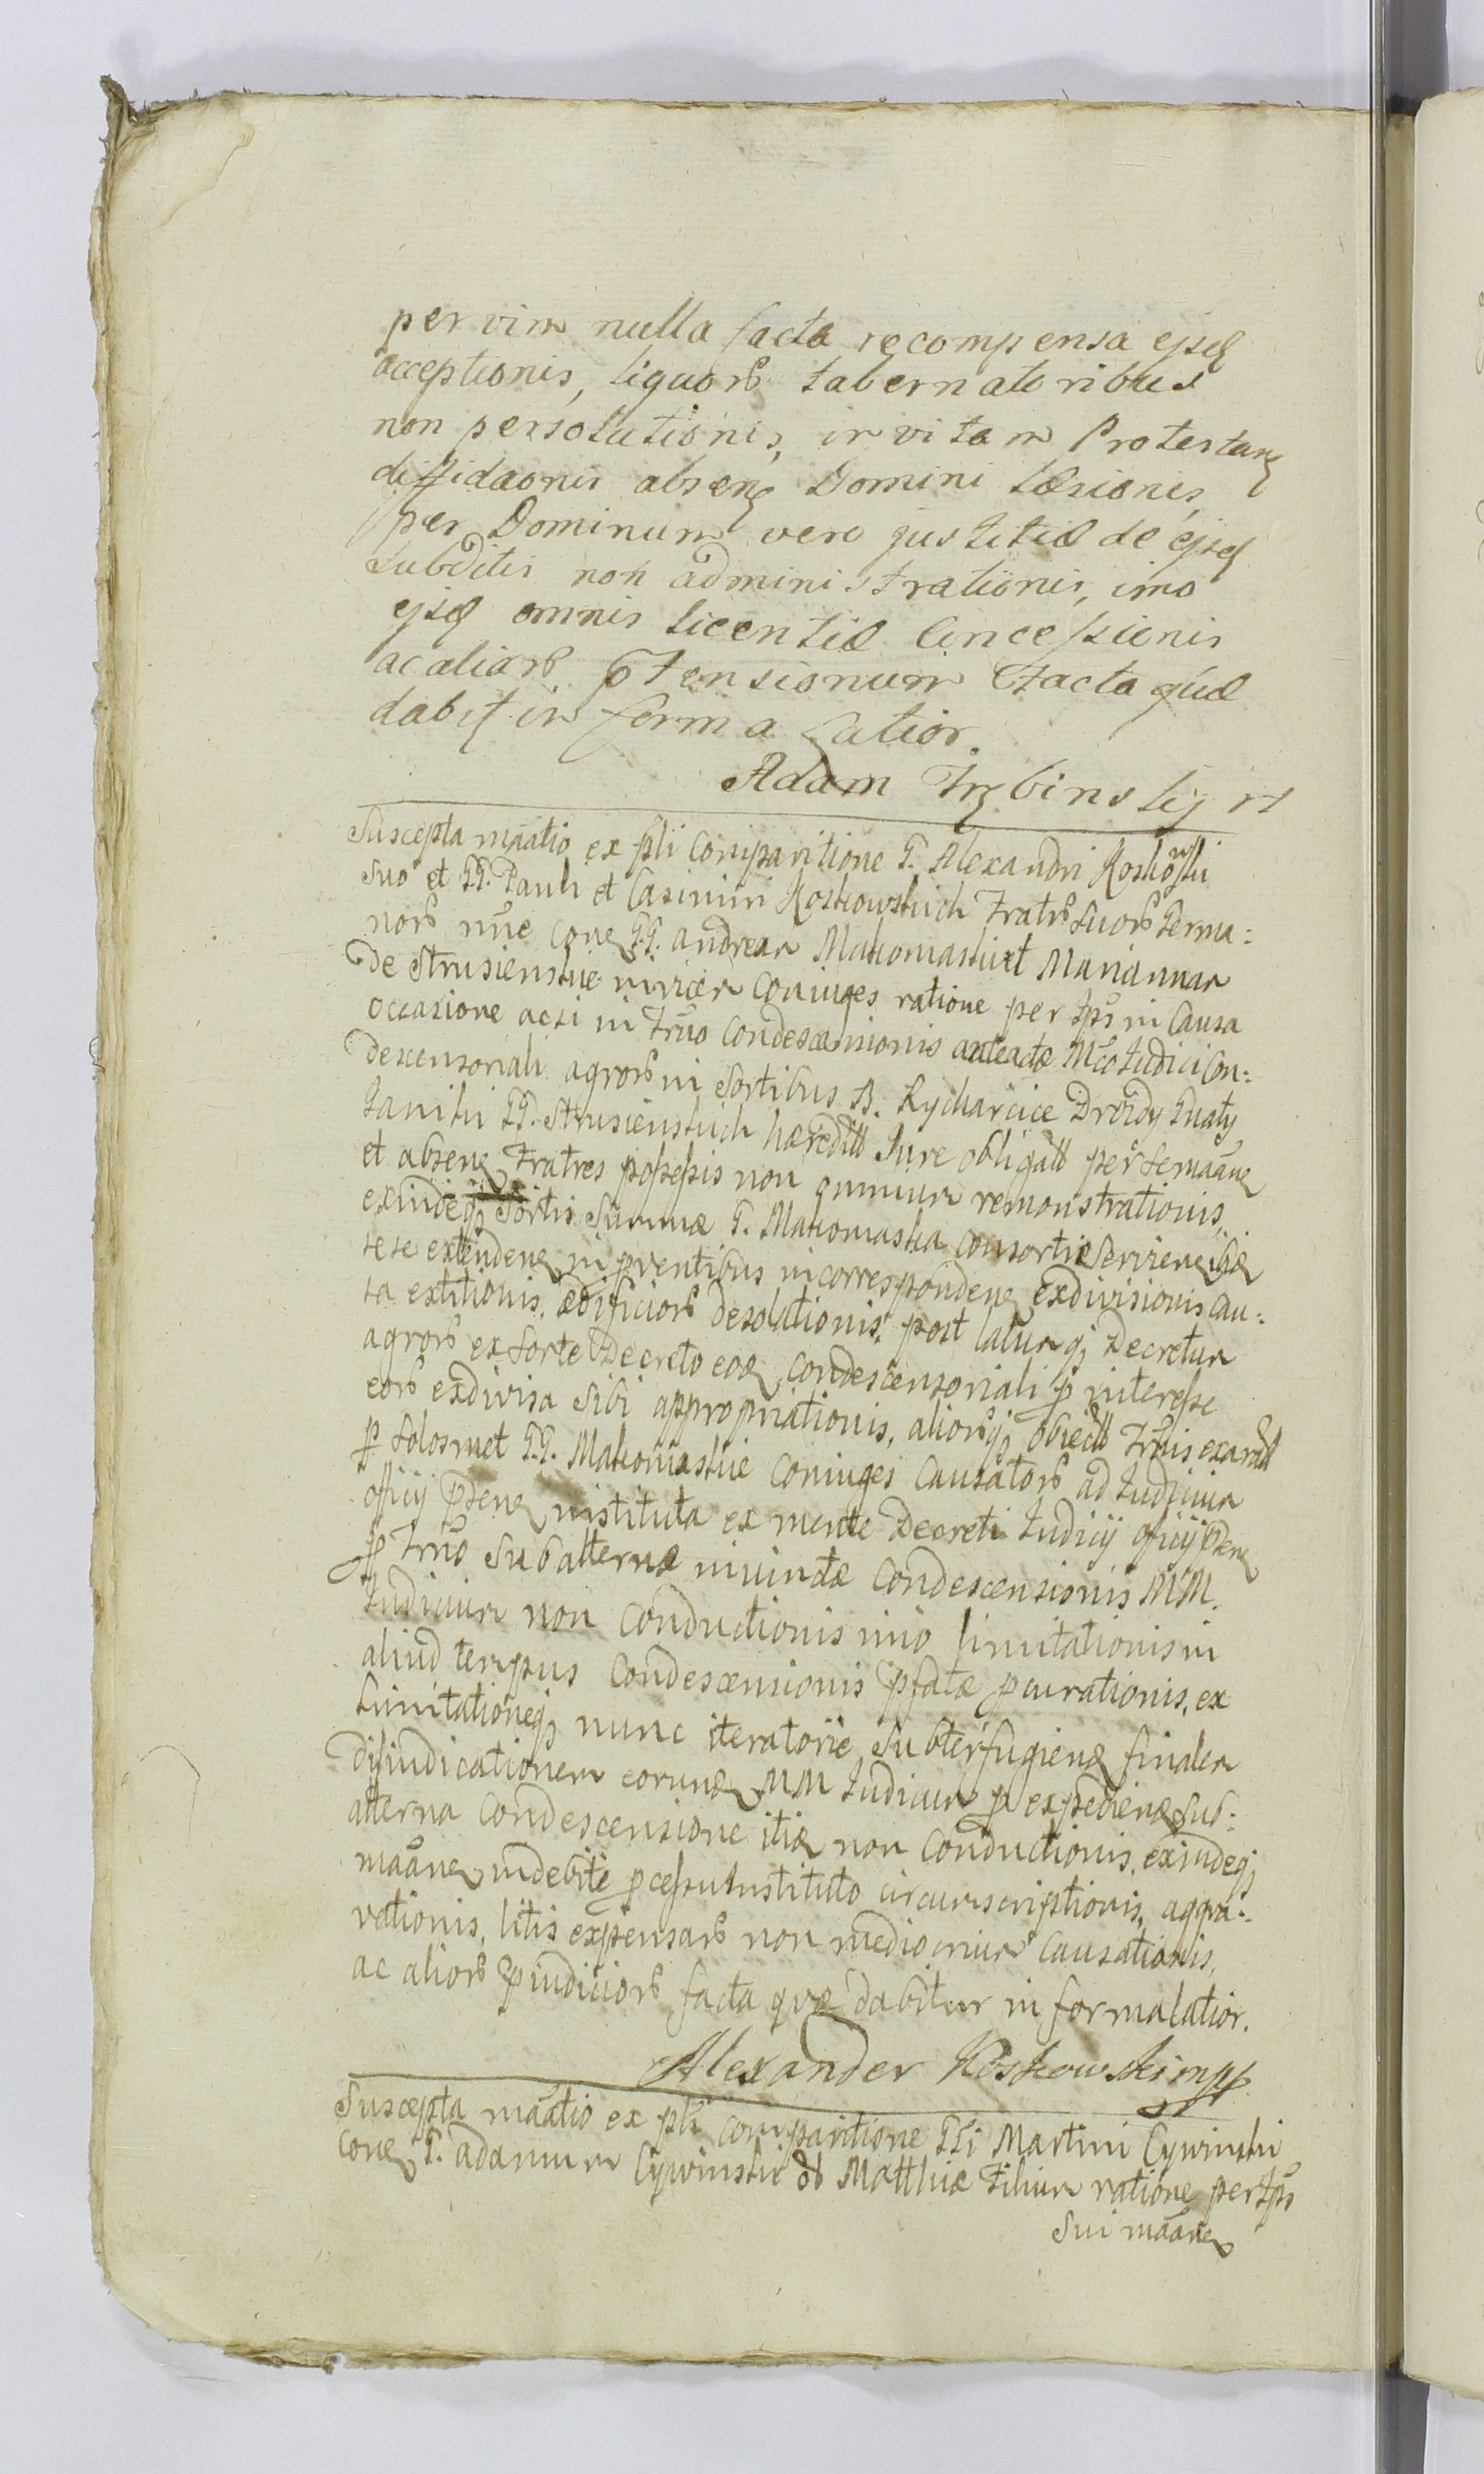 per vim nulla facta recompensa ejsq
acceptionis, liquorb tabernatoribus
non persolutionis, in vitam Protestan
diffidaonis absen Domini læsionis,
per Dominum vero justitiæ de ejsq
subditis non administrationis, imo
ejsq omnis licentiæ concessionis
ac aliorb ptensionum facta quæ
dabit in forma latior.
Adam
Suscepta mãatio ex pñti comparitione G. Alexandri Koskowski
suo et GG. Pauli et Casimiri Koskowskich Fratrb suorb Germa:
norb nõie con GG. Andream Makomaski et Mariannam
de Strusienskie invicem Coniuges ratione per Ips in Causa
occasione acsi in Trno Condescensionis anteactæ Mco Iudici Con:
descensoriali agrorb in sortibus B. Rycharcice Drozdy Gnaty
Janiki GG. Strusienskich hæreditt Iure obligatt per se mãan
et absen Fratres possessis non omnium remonstrationis,
exindeq sortis summæ G. Makomaska consorti servien
sese extenden in pventibus incorresponden exdivisionis cau:
sa extitionis, ædificiorb desolationis, post latumq Decretum
agrorb ex sorte Decreto eod condescensoriali p interesse
eorb exdivisa sibi appropriationis, aliorbq obiectt Trnis exaratt
p solosmet GG. Makomaskie Coniuges causatorb ad Iudicium
officij pten instituta ex mente Decreti Iudicij officij pten
p Trno subalternæ iniunctæ Condescensionis MM.
Iudicium non conductionis imo limitationis in
aliud tempus Condescensionis pfatæ pcurationis, ex
limitationeq nunc iteratorie subterfugien finalem
dijudicationem eorund MM Iudicum p expedien sub:
alterna Condescensione non conductionis, exindeq
mãan indebite pcessu instituto circumscriptionis, aggra:
vationis, litis expensarb non mediocrium causationis,
ac aliorb pjudiciorb facta quæ dabitur in forma latior.
Alexander Koskowski mpp
Suscepta mãatio ex pñti comparitione Martini Cywinski
con G. Adamum Cywinski Matthiæ Filium ratione per Ips
sui mãan